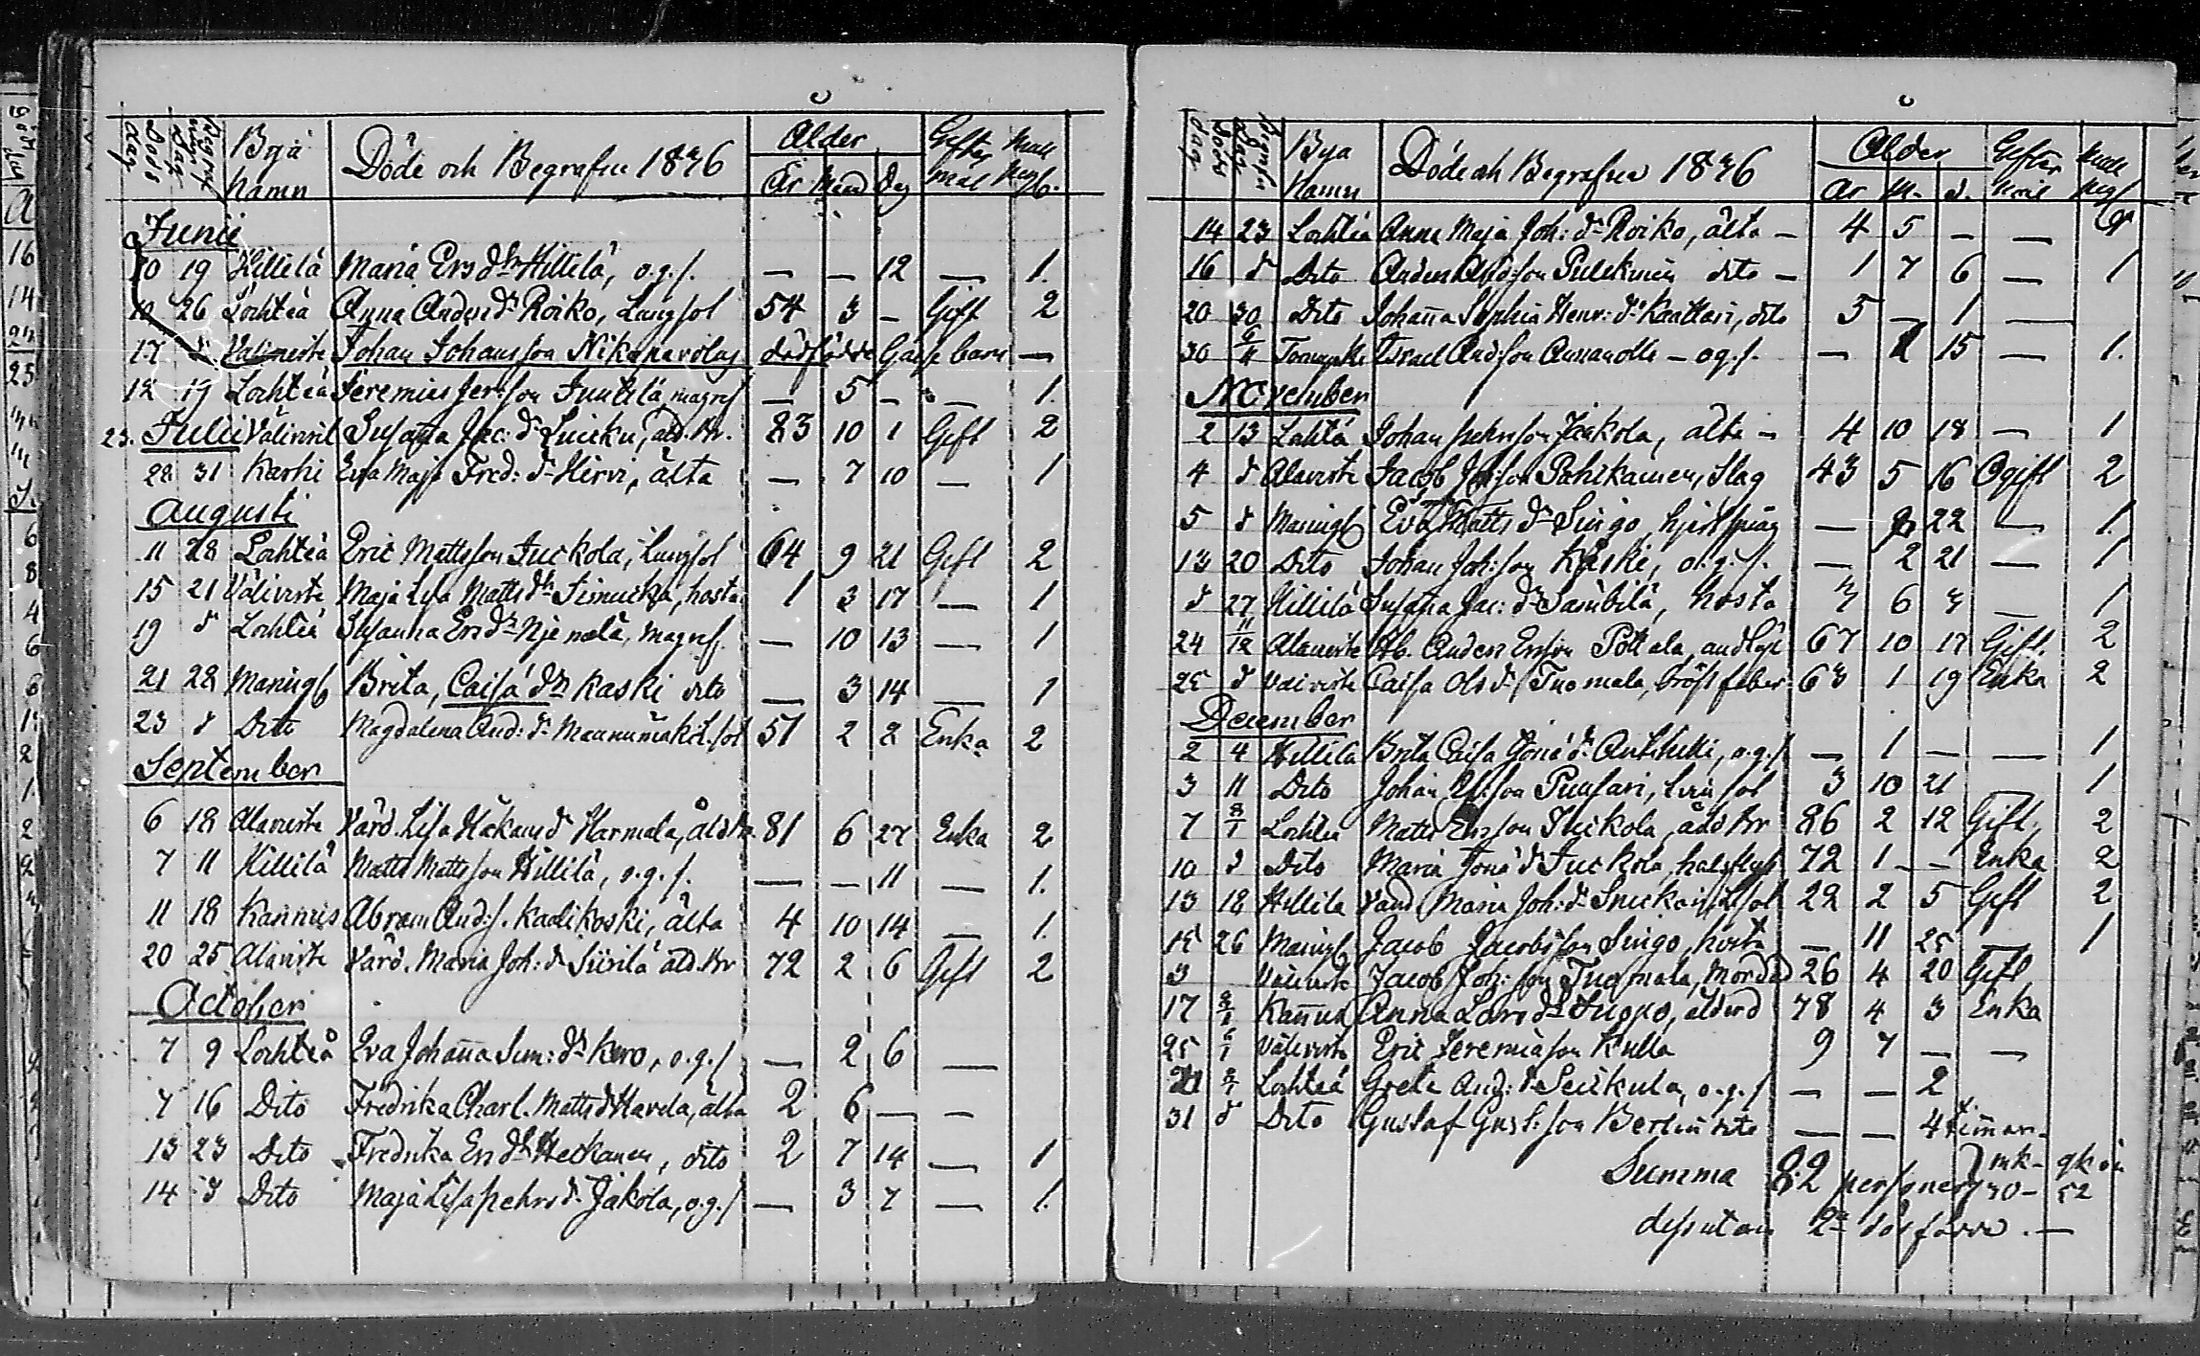 Döds dag Begrafnings dag Bya Namn Döde och Begrafne 1836 Ålder År Månd Dag Giftermål
Junii
10 19 Hillilä Maria Ers dr Hillilä, o.g.s. — — 12 — 1.
10 26 Lochteå Anna Anders dr Roiko, Lungsot 54 3 — Gift 2
17 Välivirre Johan Johansson Nikanarölas dödfödde Gåssebarn —
18 19 Lochteå Jeremias Jersson Juntilä, magref — 5 — — 1.
23. Julii Välivirre Susanna Jac: dr Luciku, åld. br. 83 10 1 Gift 2
28 31 Karhi Eva Maja Fred: dr Hirvi, älta — 7 10 — 1
Augusti
11 28 Lochteå Eric Mattsson Juckola, Lungsot 64 9 21 Gift 2
15 21 Välivirre Maja Lisa Matts dr Simucka, hosta 1 3 17 — 1
19 d Lochteå Susanna Ers dr Njemelä, magref — 10 13 — 1
21 28 Maringb Brita, Caisa dr Kaski dito — 3 14 — 1
23 d Dito Magdalena And: dr Maununiaki L.sot 51 2 2 Enka 2
September
6 18 Alavirre Värd. Lisa Håkans dr Harmala, åld br 81 6 27 Enka 2
7 11 Hillilä Matts Mattsson Hillilä, o.g.s. — — 11 — 1.
11 18 Kannus Abram And: s. Kaalikoski, älta 4 10 14 — 1.
20 25 Alavirre Värd. Maria Joh: d Siirilä åld. br 72 2 6 Gift 2
October
7 9 Lochteå Eva Johanna Sim: dr Kero, o.g.s — 2 6 —
7 16 Dito Fredrika Charl. Matts d Havela, älta 2 6 — —
13 23 Dito Fredrika Ers dr Heckanen, dito 2 7 14 — 1
14 d Dito Maja Lisa Pehrs dr Jäkola, o.g.s — 3 7 — 1.
Bya Namn Döde och Begrafne 1836 Ålder År M. d.
14 23 Lochteå Anna Maja Joh: dr Roiko, älta — 4 5 — — 1
16 d Dito Anders Andsson Pulckinen dito — 1 7 6 — 1
20 30 Dito Johanna Sophia Henr: dr Kaattari, dito 5 — 1 —
30 6/11 Israel Andsson Annanolli — o.g.s. — 1 15 — 1.
November
2 13 Lochteå Johan Pehrsson Jäkola, älta — 4 10 18 — 1
4 d Alavirre Jacob Johsson Pahikainen, Slag 43 5 16 Ogift 2
5 d Maringb Eva Matts dr Singo, hjertspäng — 2 22 — 1.
13 20 Dito Johan Joh: son Kaski, o.g.s. — 2 21 — 1
d 27 Hillilä Susanna Jac: dr Sambilä, hosta 3 6 3 — 1
24 11/12 Alavirre Hb. Anders Ersson Pokala, andtäp 67 10 17 Gift. 2
25 d Välivirre Caisa Ols dr Tuomala, bröstfeber 63 1 19 Enka 2
December
2 4 Hillilä Brita Caisa Jona dr Anttkilli, o.g.s — 1 — — 1
3 11 Dito Johan son Puusari, Lungsot 3 10 21 — 1
7 8/1 Lochteå Matts Ersson Juckola, åld br 86 2 12 Gift, 2
10 d Dito Maria Jona dr Juckola, halsfluss 72 1 — Enka 2
13 18 Hillilä Maria Joh: dr Snickars, L.sot 22 2 5 Gift 2
15 26 Maringb Jacob Jacobsson Singo, hosta — 11 25 — 1
3 Välivirre Jacob Joh: son Tuomala, Mördad 26 4 20 Gift
17 2/1 Kannus Anna Lars dr Juopo, ålderd 78 4 3 Enka
25 6/1 Välivirre Eric Jeremiasson Kulla 9 7 — —
21 2/1 Lochteå Greta And: dr Seickula, o.g.s — — 2
31 d Dito Gustaf Gust: son Berlin dito — — 4 timmar.
Summa 82 personer
dessutom 2ne